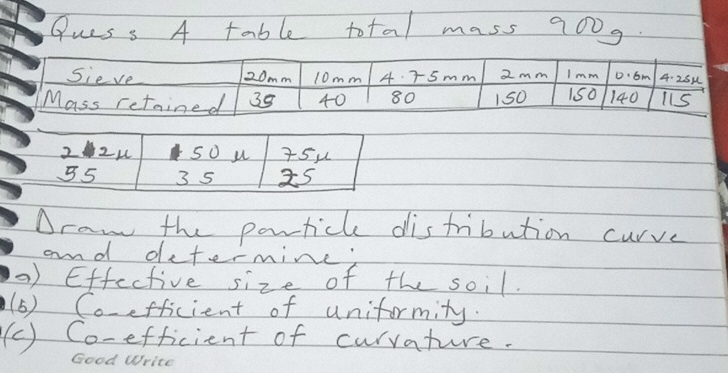 Ques : A table total mass 900g.
Sieve 20mm 10mm 4.75mm 2mm 1mm 0.6m 4.25μ
Mass retained 35 40 80 150 150 140 115
212μ 150μ 75μ
55 35 25
Draw the particle distribution curve
and determine;
a) Effective size of the soil.
(b) Co-efficient of uniformity.
(c) Co-efficient of curvature.
Good Write